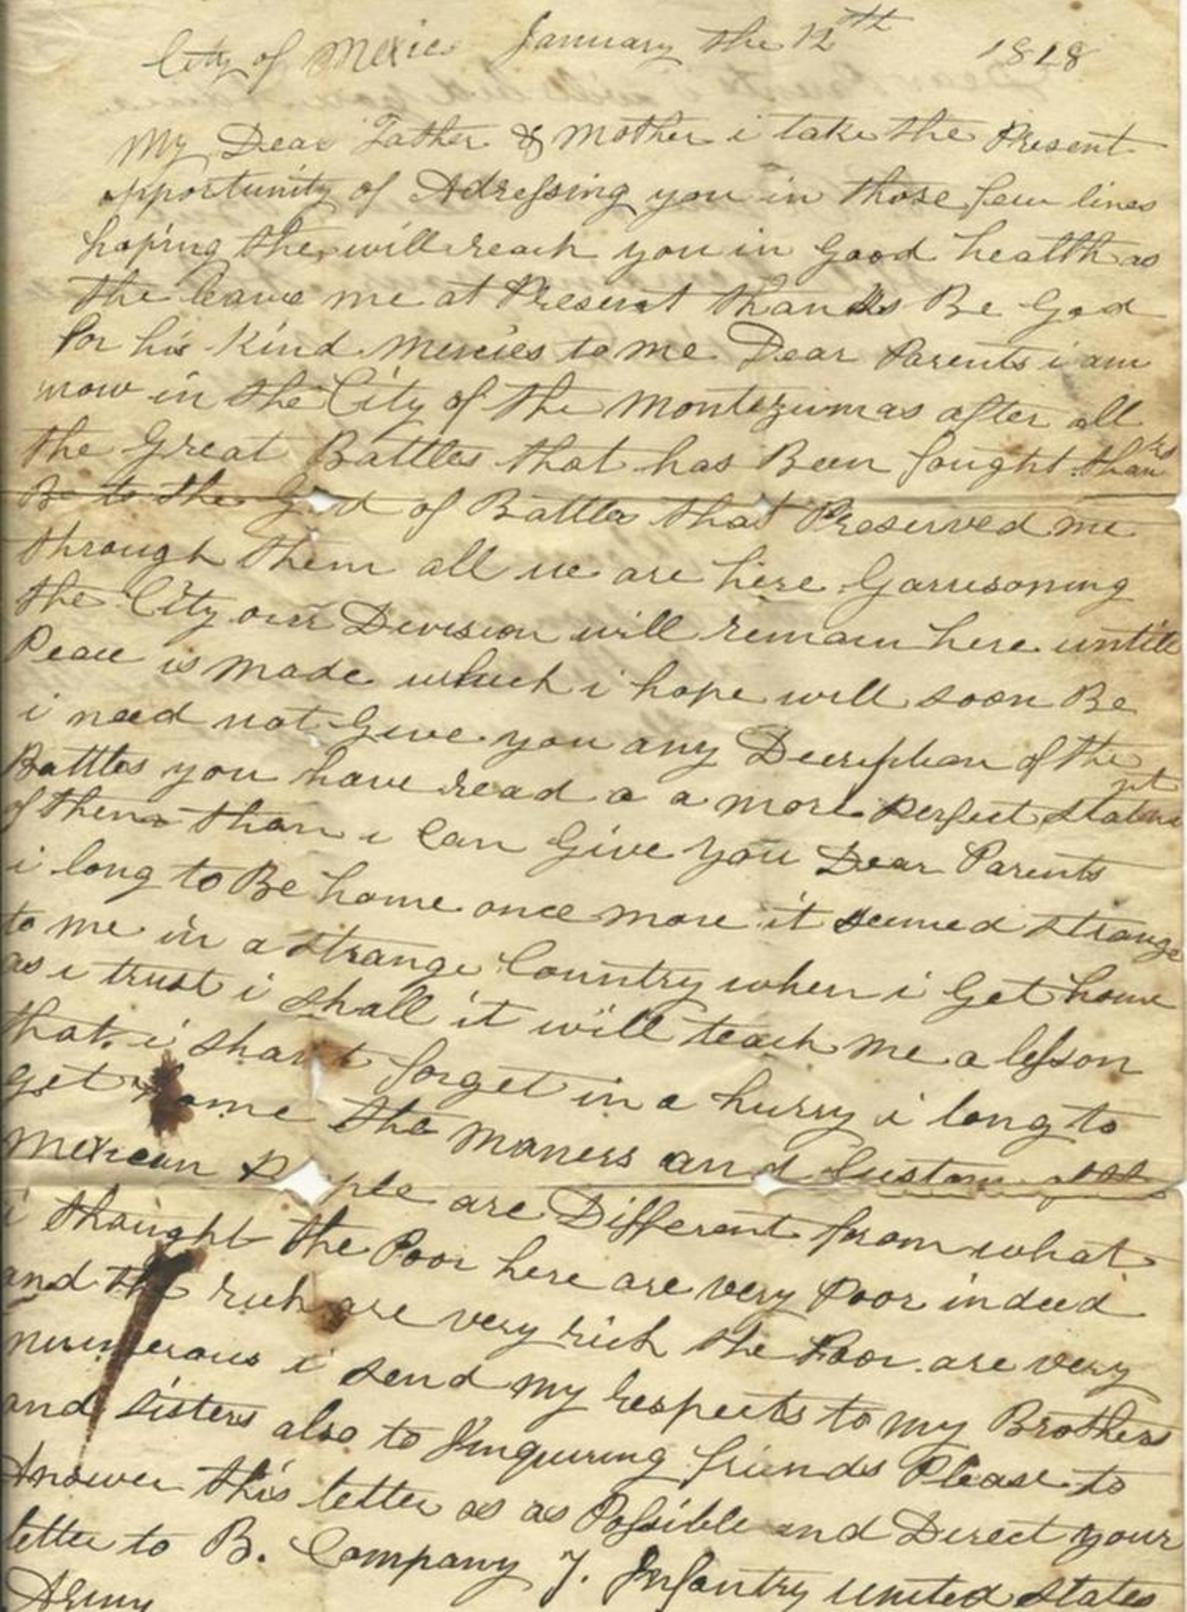 City of Mexico January the 12th 1848
My Dear Father & Mother i take the Present
opportunity of Adressing you in those few lines
hoping the will reach you in Good health as
the leave me at Present thanks Be God
for his Kind Mercies to me Dear Parents i am
now in the City of the Montezumas after all
the Great Battles that has Been fought thanks
Be to the God of Battles that Preserved me
through them all we are here Garrisoning
the City our Devision will remain here untill
Peace is made which i hope will soon Be
i need not Give you any Decription of the
Battles you have read a a more perfect Statement
of them than i Can Give you Dear Parents
i long to Be home once more it seemed strange
to me in a strange Country when i Get home
as i trust i shall it will teach me a lesson
that i shant forget in a hurry i long to
get home the maners and Custom of the
Mexican People are Different from what
i thought the Poor here are very Poor indeed
and the rich are very rich the Poor are very
numerous i send my respects to my Brothers
and sisters also to Inquiring friends Please to
Answer this letter as as Possible and Direct your
letter to B. Company 7. Infantry united States
Army